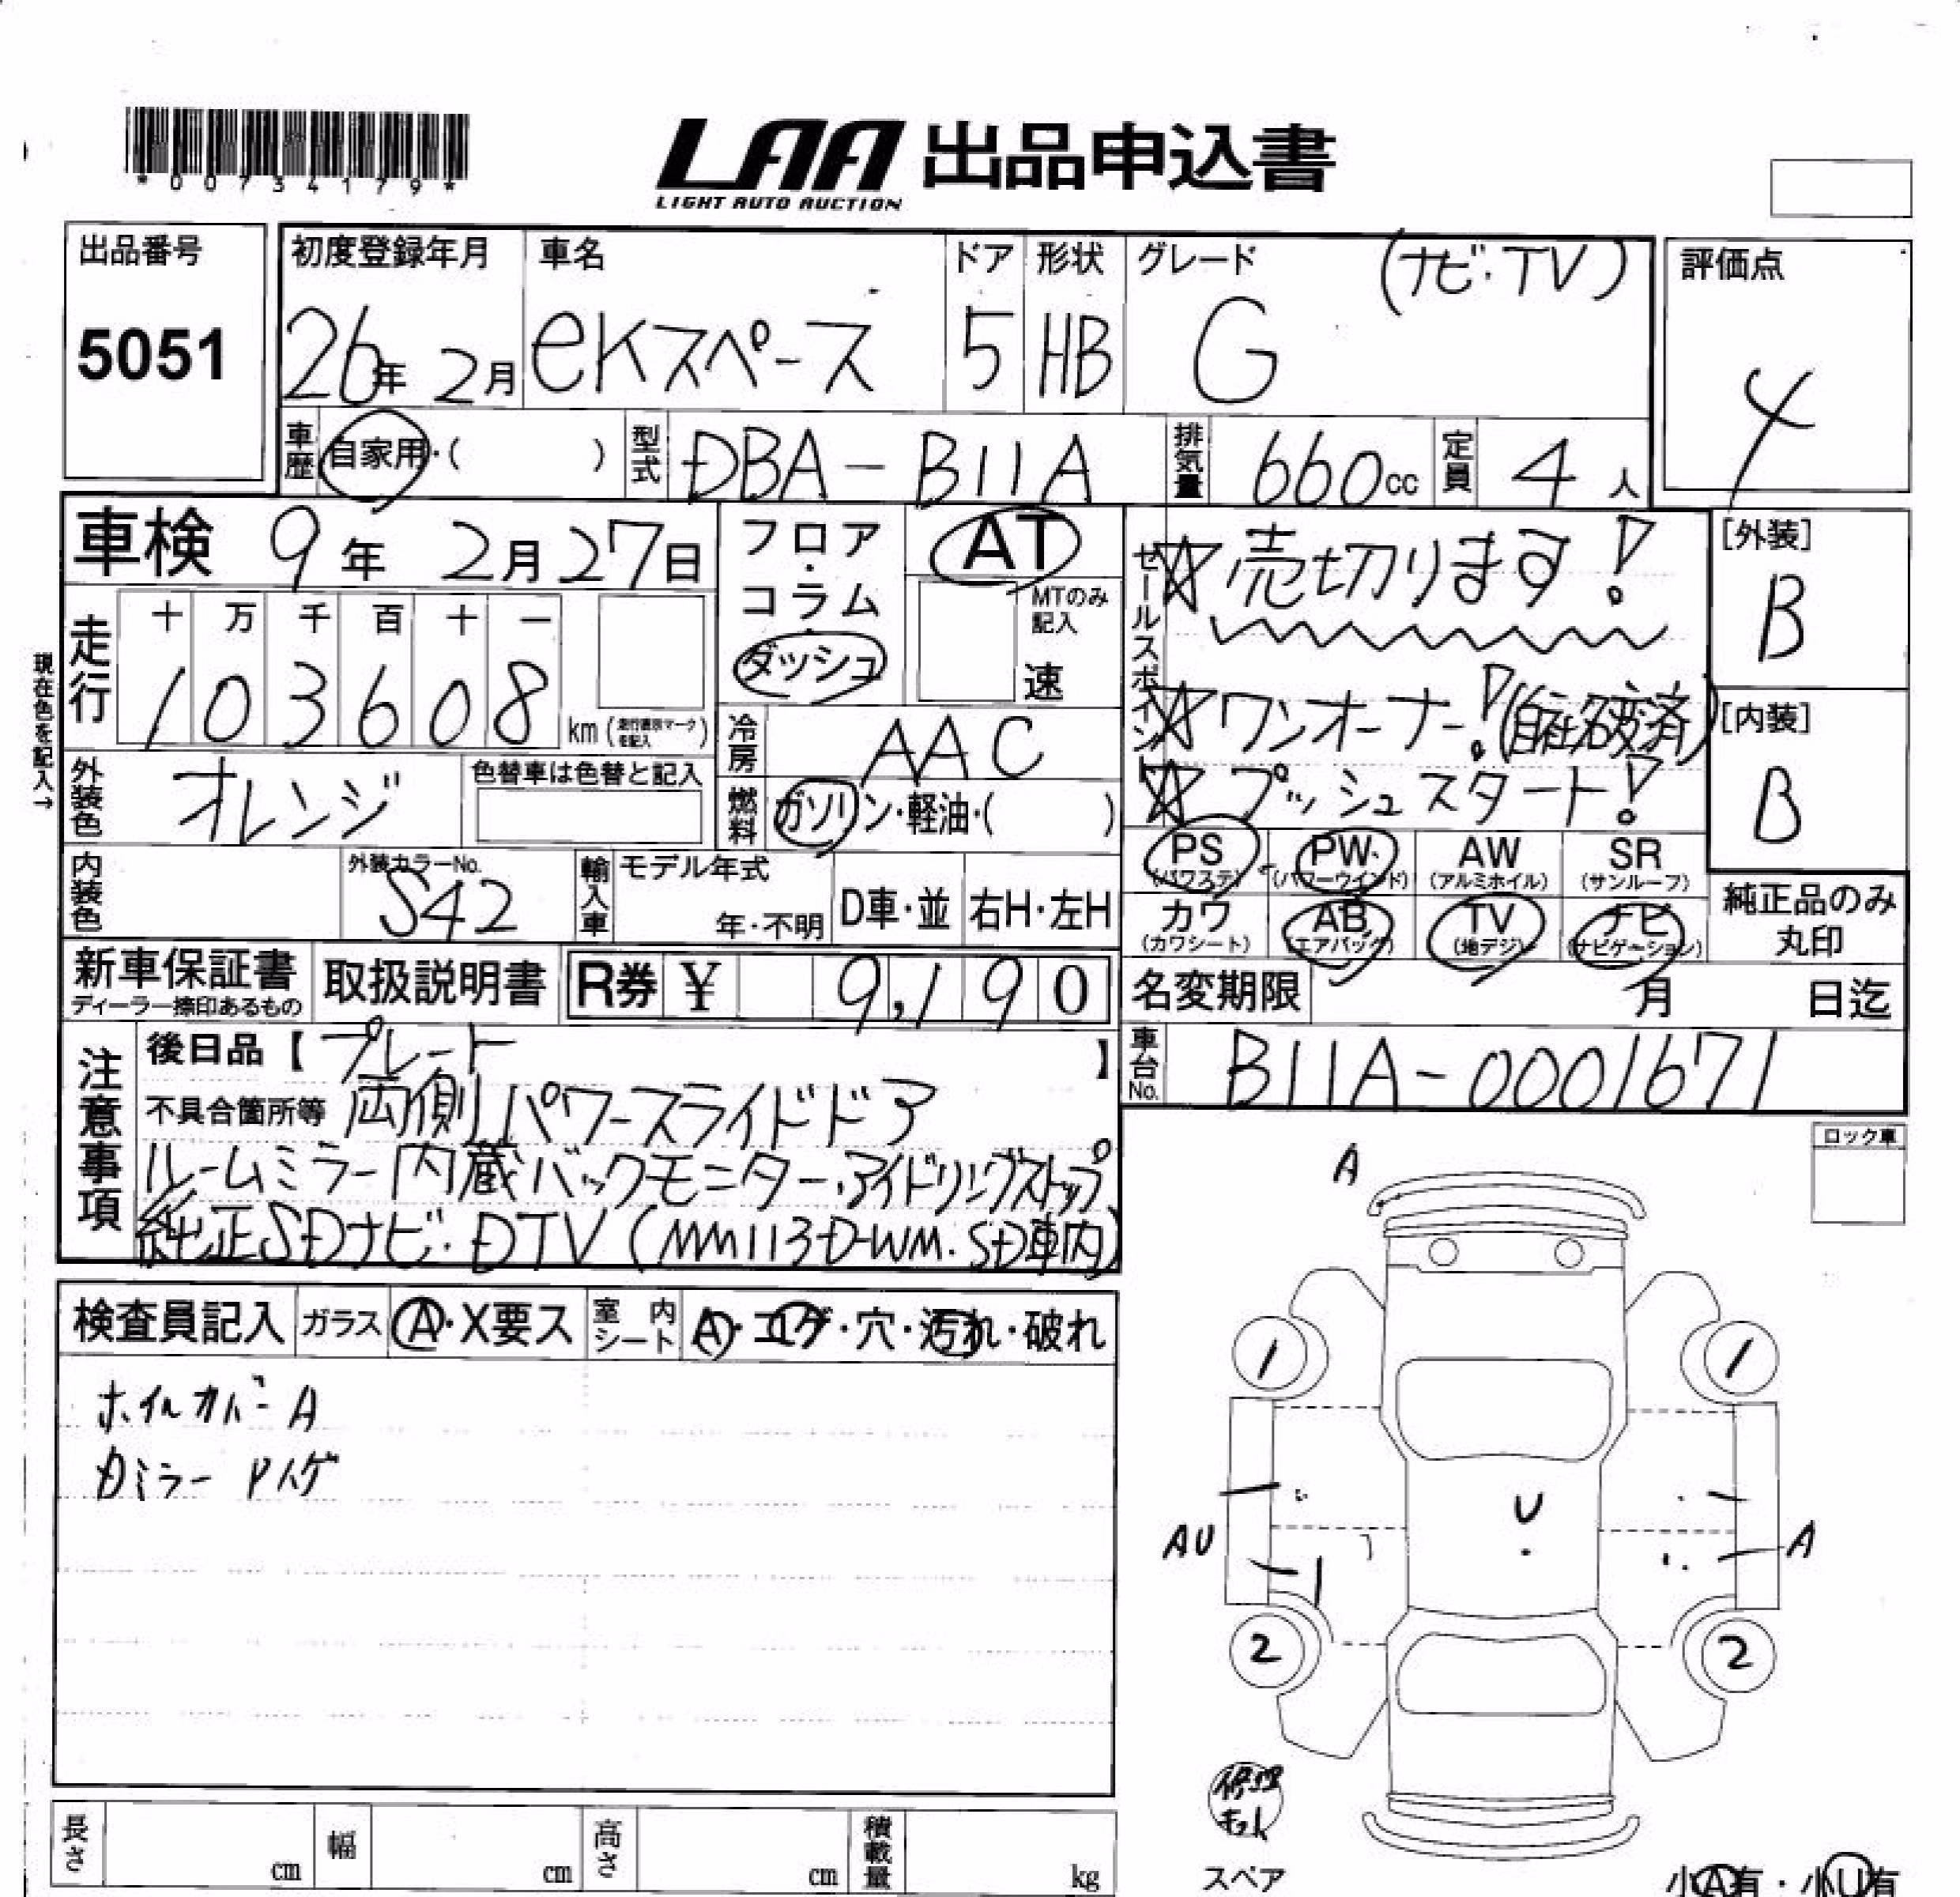 *00734179*
LAA 出品申込書
LIGHT AUTO AUCTION
出品番号
5051
初度登録年月
26年 2月
車名
eKスペース
ドア
5
形状
HB
グレード
(ナビ・TV)
G
評価点
4
車歴 自家用・( )
型式 DBA-B11A
排気量 660cc
定員 4人
車検 9年 2月27日
フロア・コラム・ダッシュ
AT
MTのみ記入
速
セールスポイント
☆売切ります!
☆ワンオーナー!(自社名変済)
☆プッシュスタート!
[外装]
B
[内装]
B
現在色を記入→
走行
十 万 千 百 十 一
1 0 3 6 0 8
km(走行表示マークを記入)
冷房 AAC
外装色 オレンジ
色替車は色替と記入
燃料 ガソリン・軽油・( )
内装色
外装カラーNo.
S42
輸入車
モデル年式
年・不明
D車・並
右H・左H
PS (パワステ)
PW (パワーウインド)
AW (アルミホイル)
SR (サンルーフ)
カワ (カワシート)
AB (エアバック)
TV (地デジ)
ナビ (ナビゲーション)
純正品のみ
丸印
新車保証書
ディーラー捺印あるもの
取扱説明書
R券 ¥ 9,190
名変期限 月 日迄
車台No. B11A-0001671
注意事項
後日品【プレート】
不具合箇所等 両側パワースライドドア
ルームミラー内蔵バックモニター・アイドリングストップ
純正SDナビ・DTV(MM113D-WM.SD車内)
ロック車
検査員記入
ガラス A・X要ス
室内シート A・コゲ・穴・汚れ・破れ
ホイルカバーA
カミラー
A
1
1
U
AU
A
2
2
修理キット
スペア
小A有・小U有
長さ cm
幅 cm
高さ cm
積載量 kg